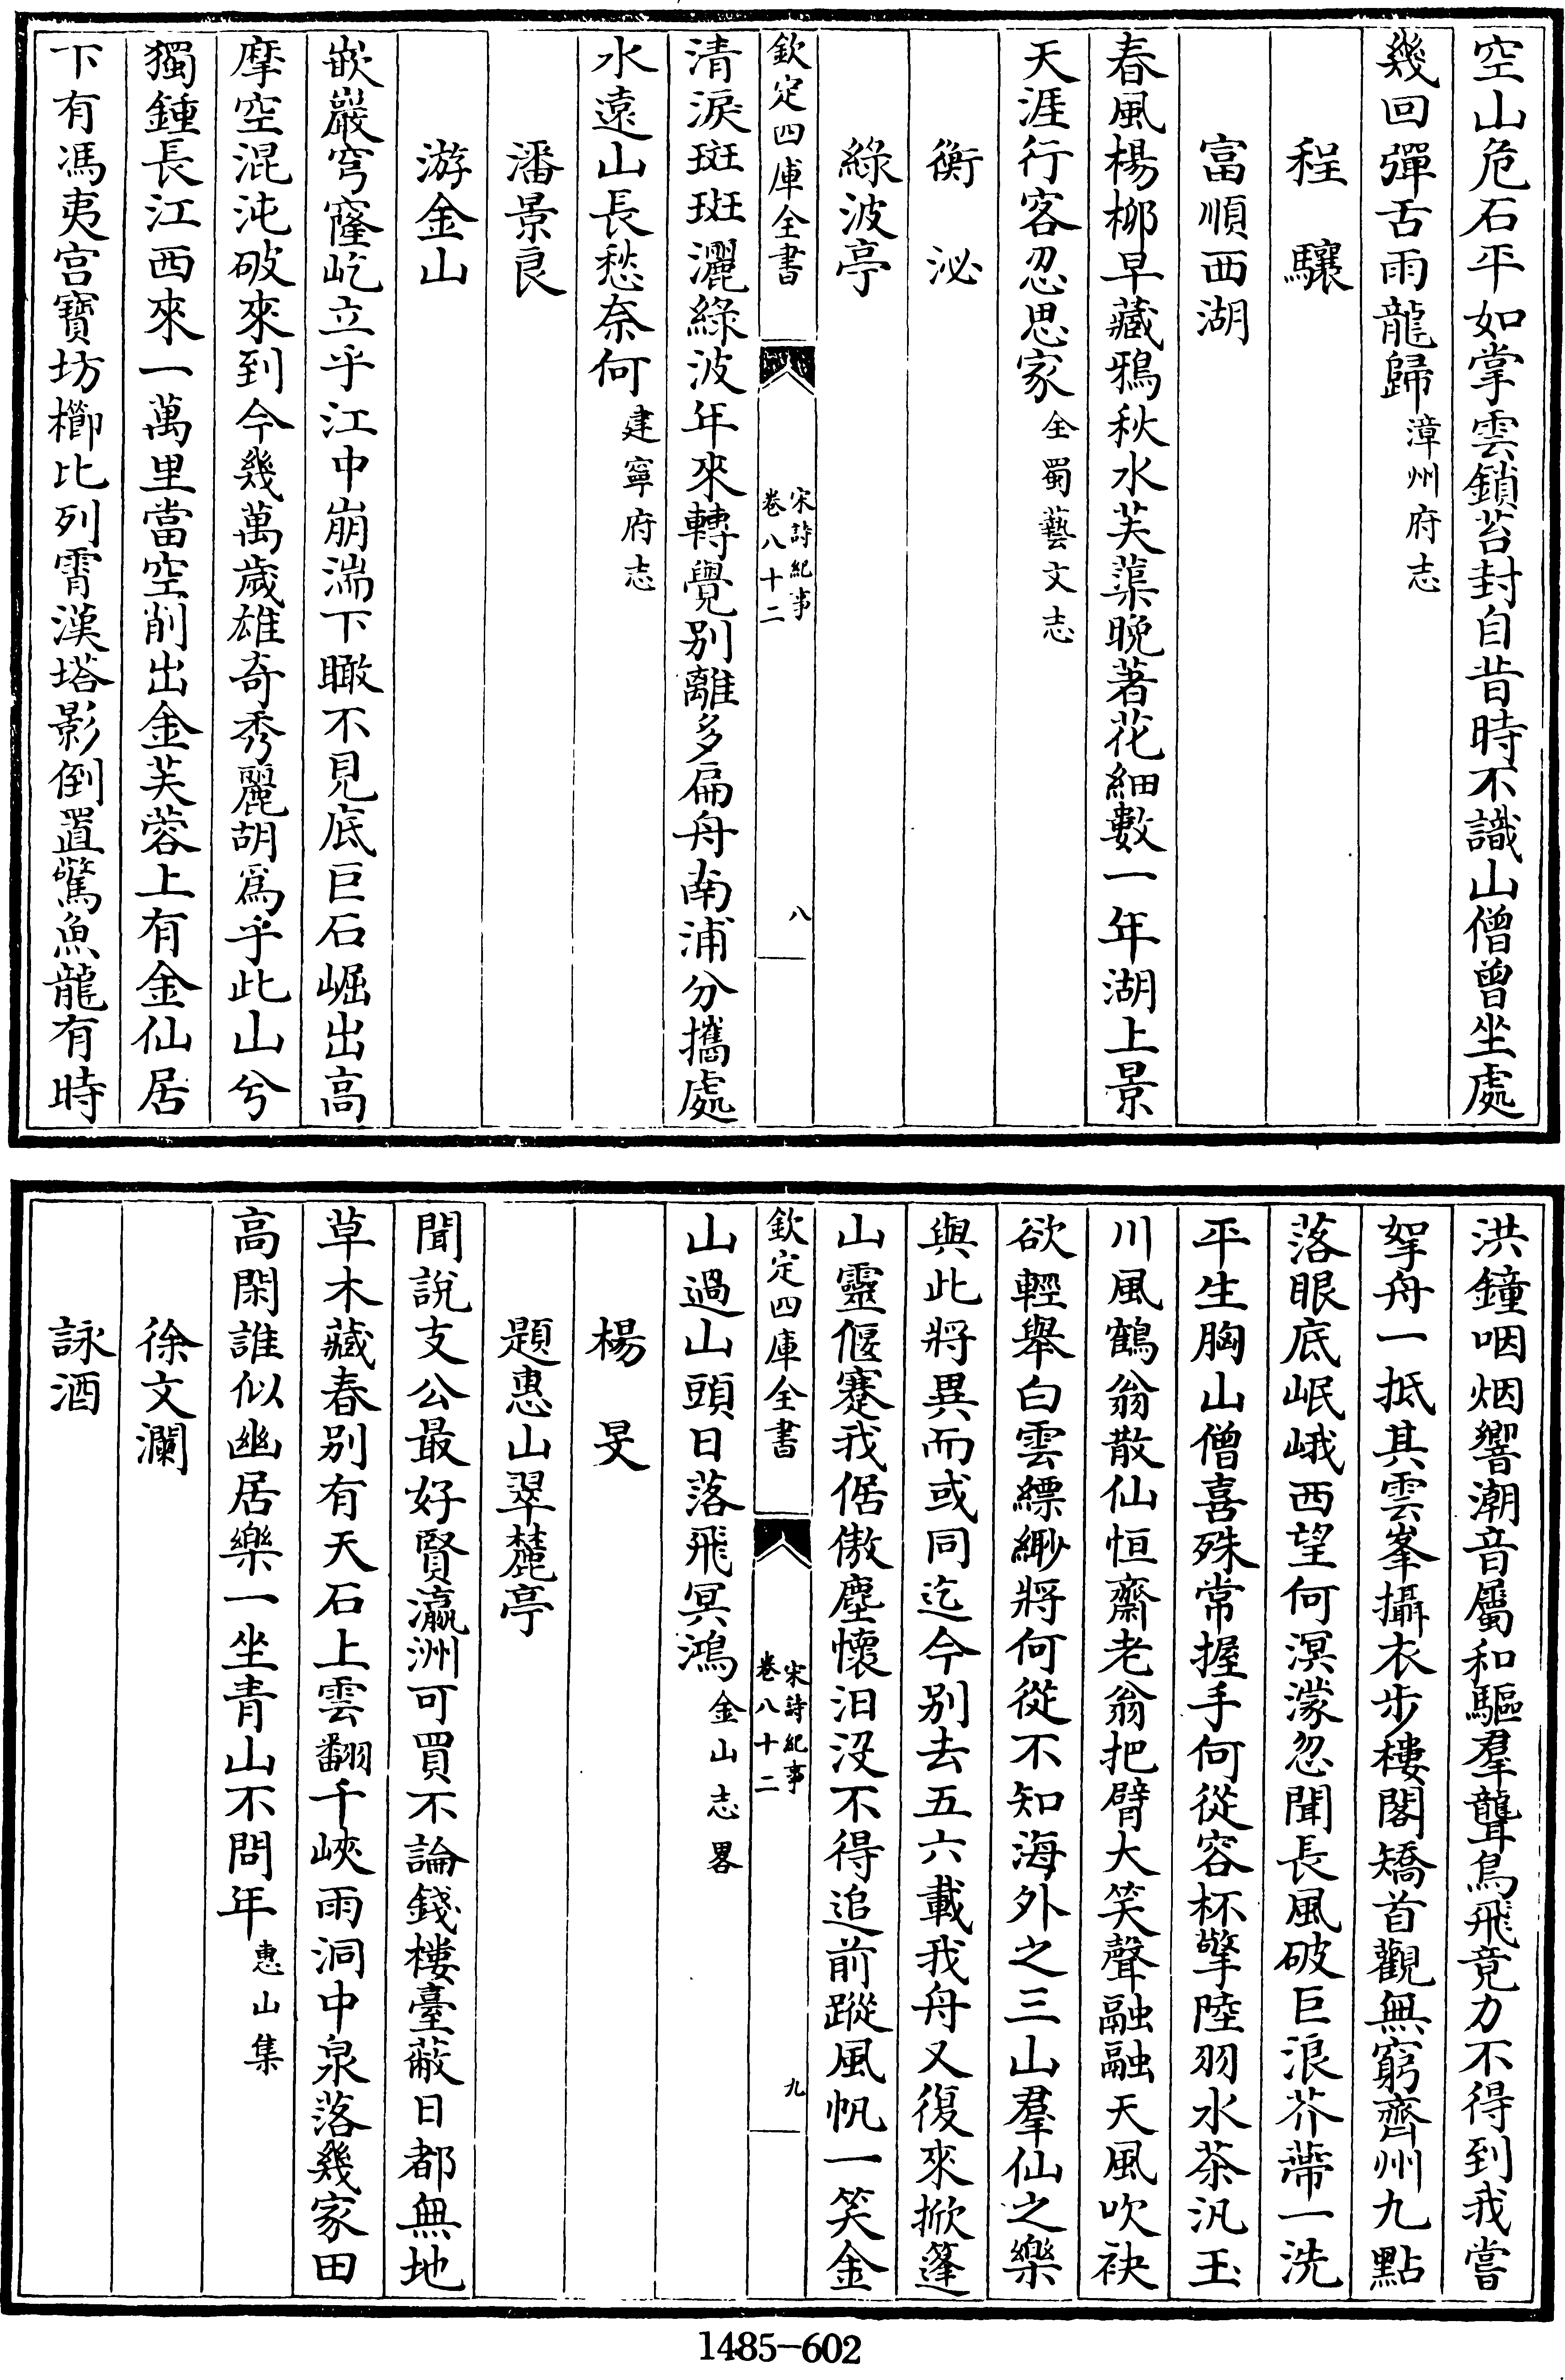 空山危石平如掌雲鎖苔封自昔時不識山僧曾坐處
幾回彈舌雨龍歸漳州府志
程驤
富順西湖
春風楊柳早藏鴉秋水芙蕖晚著花細數一年湖上景
天涯行客忍思家全蜀藝文志
衡泌
綠波亭
欽定四庫全書
宋詩紀事
卷八十二
八
清淚斑斑灑綠波年來轉覺別離多扁舟南浦分攜處
水遠山長愁奈何建寧府志
潘景良
游金山
嵌巖穹窿屹立乎江中崩湍下瞰不見底巨石崛出高
摩空混沌破來到今幾萬歲雄奇秀麗胡爲乎此山兮
獨鍾長江西來一萬里當空削出金芙蓉上有金仙居
下有馮夷宮寶坊櫛比列霄漢塔影倒置驚魚龍有時
洪鐘咽烟響潮音屬和驅羣聾鳥飛竟力不得到我嘗
拏舟一抵其雲峯攝衣步樓閣矯首觀無窮齊州九點
落眼底岷峨西望何溟濛忽聞長風破巨浪芥蔕一洗
平生胸山僧喜殊常握手何從容杯擎陸羽水茶汎玉
川風鶴翁散仙恒齋老翁把臂大笑聲融融天風吹袂
欲輕舉白雲縹緲將何從不知海外之三山羣仙之樂
與此將異而或同迄今別去五六載我舟又復來掀篷
山靈偃蹇我倨傲塵懷汩沒不得追前蹤風帆一笑金
欽定四庫全書
宋詩紀事
卷八十二
九
山過山頭日落飛冥鴻金山志畧
楊旻
題惠山翠麓亭
聞說支公最好賢瀛洲可買不論錢樓臺蔽日都無地
草木藏春別有天石上雲翻千峽雨洞中泉落幾家田
高閑誰似幽居樂一坐青山不問年惠山集
徐文瀾
詠酒
1485-602